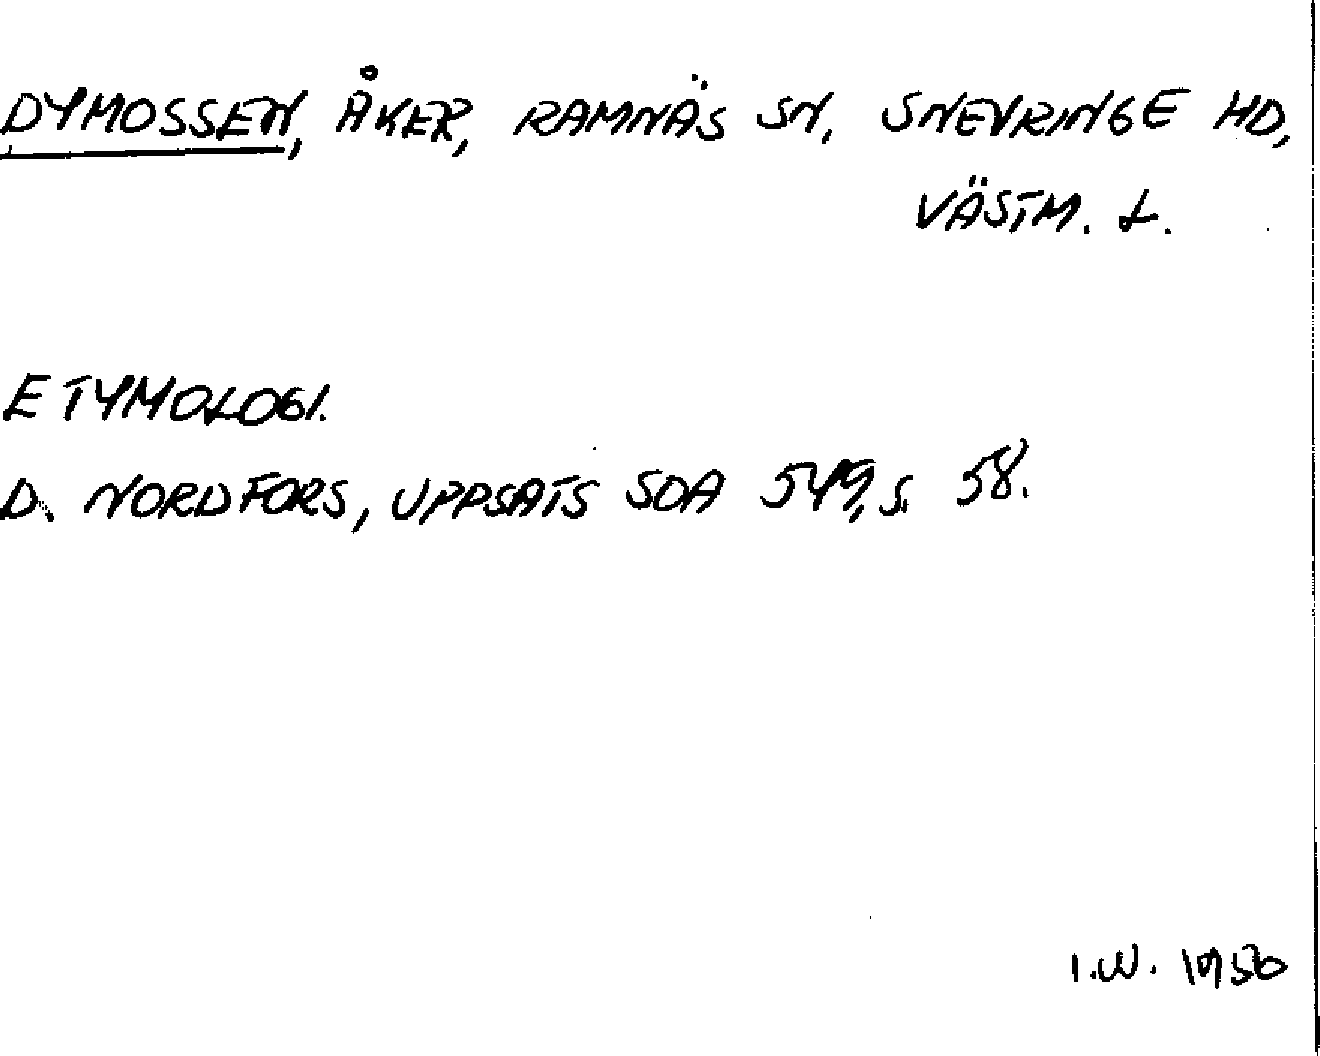 DYMOSSEN, ÅKER, RAMNÄS SN, SNEVRINGE HD,
VÄSTM. L.
ETYMOLOGI.
D. NORDFORS, UPPSATS SOA 549, S. 58.
I.W. 1950